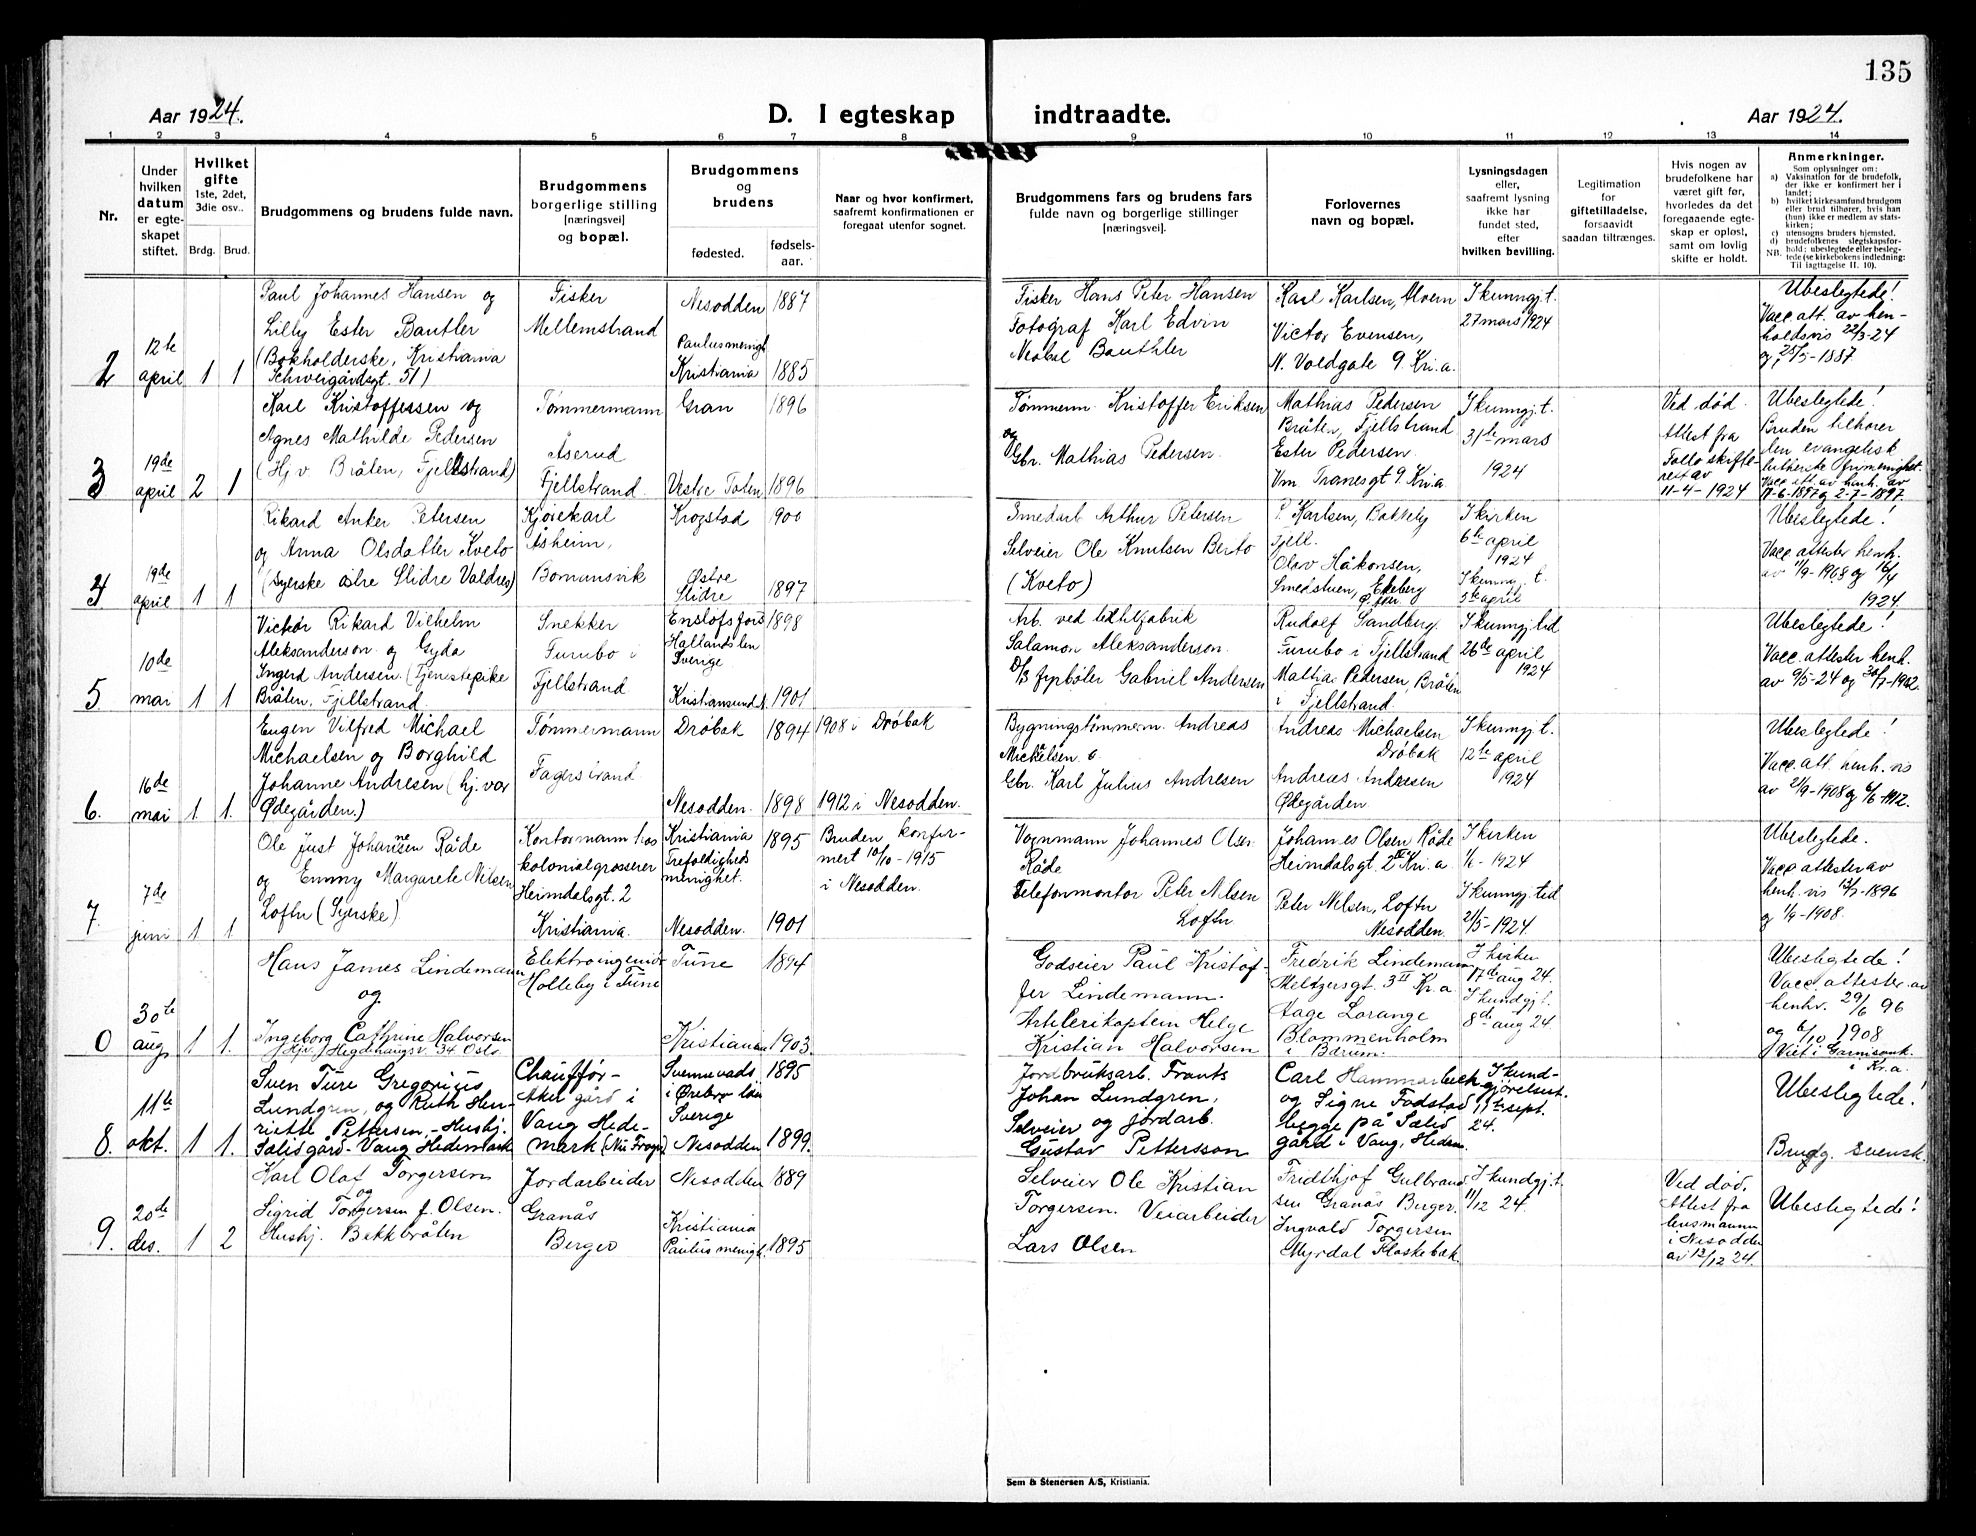 135
Aar 1924.
D. I egteskap indtraadte.
Aar 1924.
1 2 3 4 5 6 7 8 9 10 11 12 13 14
Nr.
Under
hvilken
datum
er egte-
skapet
stiftet.
Hvilket
gifte
1ste, 2det,
3die osv..
Brdg. Brud.
Brudgommens og brudens fulde navn.
Brudgommens
borgerlige stilling
[næringsvei]
og bopæl.
Brudgommens
og
brudens
fødested.
fødsels-
aar.
Naar og hvor konfirmert,
saafremt konfirmationen er
foregaat utenfor sognet.
Brudgommens fars og brudens fars
fulde navn og borgerlige stillinger
[næringsvei].
Forlovernes
navn og bopæl.
Lysningsdagen
eller,
saafremt lysning
ikke har
fundet sted,
efter
hvilken bevilling.
Legitimation
for
giftetilladelse,
forsaavidt
saadan tiltrænges.
Hvis nogen av
brudefolkene har
været gift før,
hvorledes da det
foregaaende egte-
skap er opløst,
samt om lovlig
skifte er holdt.
Anmerkninger.
Som oplysninger om:
a) Vaksination for de brudefolk,
der ikke er konfirmert her i
landet;
b) hvilket kirkesamfund brudgom
eller brud tilhører, hvis han
(hun) ikke er medlem av stats-
kirken;
c) utensogns bruders hjemsted.
d) brudefolkenes slegtskapsfor-
hold: ubeslegtede eller besleg-
NB. tede (se kirkebokens indledning:
Til iagttagelse II. 10).
2
12te
april
1 1
Paul Johannes Hansen og
Lilly Ester Bautler
(Bokholderske, Kristiania
Schweigårdsgt. 51)
Fisker
Mellemstrand
Nesodden 1887
Paulus menigh
Kristiania 1885
Fisker Hans Peter Hansen
Fotograf Karl Edvin
Bauthler
Karl Karlsen, Alvern
Victor Evensen,
N. Voldgate 9 Kr.a.
I kunngj.t.
27 mars 1924
Ubeslegtede!
Vacc. att. av hen-
holdsvis 22/3-24
og 25/5-1887
3
19de
april
2 1
Karl Kristoffersen og
Agnes Mathilde Pedersen
(Hj. v Bråten, Fjellstrand)
Tømmermann
Åserud
Fjellstrand.
Gran 1896
Vestre Toten 1896
Tømmerm. Kristoffer Eriksen
og
Gbr. Mathias Pedersen.
Mathias Pedersen
Bråten, Fjellstrand
Ester Pedersen.
Vm. Tranesgt 9 Kr.a.
I kunngj.t.
31te mars
1924
Ved død.
Attest fra
Follo skifte-
rest av
11-4-1924
Ubeslegtede!
Bruden tilhører
den evangelisk
lutherske frimenighet.
Vacc att av henh. av
17-6-1897 og 2-7-1897.
4
19de
april
1 1
Rikard Anker Petersen
og Anna Olsdatter Kveto
(Syerske Østre Slidre Valdres)
Kjørekarl
Åsheim,
Bomansvik
Krogstad 1900
Østre
Slidre 1897
Smedarb Arthur Petersen
Selveier Ole Knutsen Berto
(Kveto)
P. Karlsen, Bakkely
Fjell.
Olav Håkonsen,
Smedstuen, Ekeberg
I kirken
6te april
1924
I kunng. t.
5te april
Ubeslegtede!
Vacc attester henh.
av 1/9-1908 og 16/4
1924.
5
10de
mai
1 1
Victor Rikard Vilhelm
Aleksanderson og Gyda
Ingerd Andersen. (Tjenestepike
Bråten, Fjellstrand.
Snekker
Furubo i
Fjellstrand
Enslöfsfors 1898
Hallandslen
Sverige
Kristiansund N. 1901
Arb. ved textilfabrik
Salamon Aleksanderson.
D/S fyrbøter Gabriel Andersen
Rudolf Sandberg.
Furubo i Fjellstrand
Mathias Pedersen, Bråten
i Fjellstrand.
I kunngj.tid
26de april
1924
Ubeslegtede!
Vacc. attester henh.
av 9/5-24 og 30/7-1902.
6.
16de
mai
1 1.
Eugen Vilfred Michael
Michaelsen og Borghild
Johanne Andresen (hj. vær
Ødegården.)
Tømmermann
Fagerstrand
Drøbak 1894 1908 i Drøbak
Nesodden. 1898 1912 i Nesodden.
Bygningstømmerm. Andreas
Mickelsen. o
Gbr. Karl Julius Andresen
Andreas Michaelsen
Drøbak
Andreas Andersen
Ødegården
I kunngj.t.
12te april
1924
Ubeslegtede!
Vacc. att. henh. vis
av 2/9-1908 og 6/6-1912.
7.
7de
juni
1 1
Ole Just Johannesen Råde
og Emmy Margarete Nilsen
Loftn (Syerske)
Kontormann hos
kolonialgrosserer
Heimdalsgt. 2
Kristiania.
Kristiania 1895
Trefoldigheds
menighet.
Nesodden. 1901
Bruden konfir-
mert 10/10-1915
i Nesodden.
Vognmann Johannes Olsen
Råde
Telefonmontør Peter Nilsen
Loftn
Johannes Olsen Råde
Heimdalsgt. 2 Kr.a
Peter Nilsen, Loftn
Nesodden.
I kirken
1/6-1924
I kunngj.tid
21/5-1924.
Ubeslegtede.
Vacc attester av
henh. vis 17/7-1896
og 1/9-1908.
0
30te
aug
1 1.
Hans James Lindemann
og
Ingeborg Cathrine Halvorsen
(Hjv.) Hegdehaugsv. 34 Oslo
Elektroingeniør
Holleby i Tune
Tune 1894
Kristiania 1903.
Godseier Paul Kristof-
fer Lindemann.
Artillerikaptein Helge
Kristian Halvorsen
Fredrik Lindemann
Meltzersgt. 3 II Kr.a
Aage Lorange
Blommenholm
i Bærum.
I kirken
17de aug 24.
I kundgj t.
8de aug 24.
Ubeslegtede!
Vacc. attester av
henhv. 29/6 96
og 6/10 1908
Viet i Garnisonk.
i Kr.a.
8.
11te
okt.
1 1.
Sven Ture Gregorius
Lundgren, og Ruth Hen-
riette Pettersen, - Hushj.
Sælidgård - Vang Hedemark
Chauffør -
Aker gård i
Vang Hede-
mark (Nu Frogn)
Svennevads 1895
i Ørebro län
Sverige
Nesodden 1899.
Jordbruksarb. Frants
Johan Lundgren,
Selveier og jordarb.
Gustav Pettersson
Carl Hammarbeck
og Signe Fodstad
begge på Sælid
gård i Vang, Hedem.
I kund-
gjørelsest.
11te sept.
24.
Ubeslegtede!
Brudg. svensk.
9.
20de
des.
1 2
Karl Olaf Torgersen
og
Sigrid Torgersen f. Olsen.
Hushj. Bekkbråten
Jordarbeider
Granås
Berger
Nesodden 1889
Kristiania
Paulus menigh. 1895
Selveier Ole Kristian
Torgersen. Veiarbeider
Lars Olsen
Fridthjof Gulbrand
sen Granås Berger.
Ingvald Torgersen
Myrdal Flaskebæk.
I kundgj.t.
11/12 24.
Ved død.
Attest fra
lensmann
i Nesodden
av 12/12 24.
Ubeslegtede!
Sem & Stenersen A/S, Kristiania.